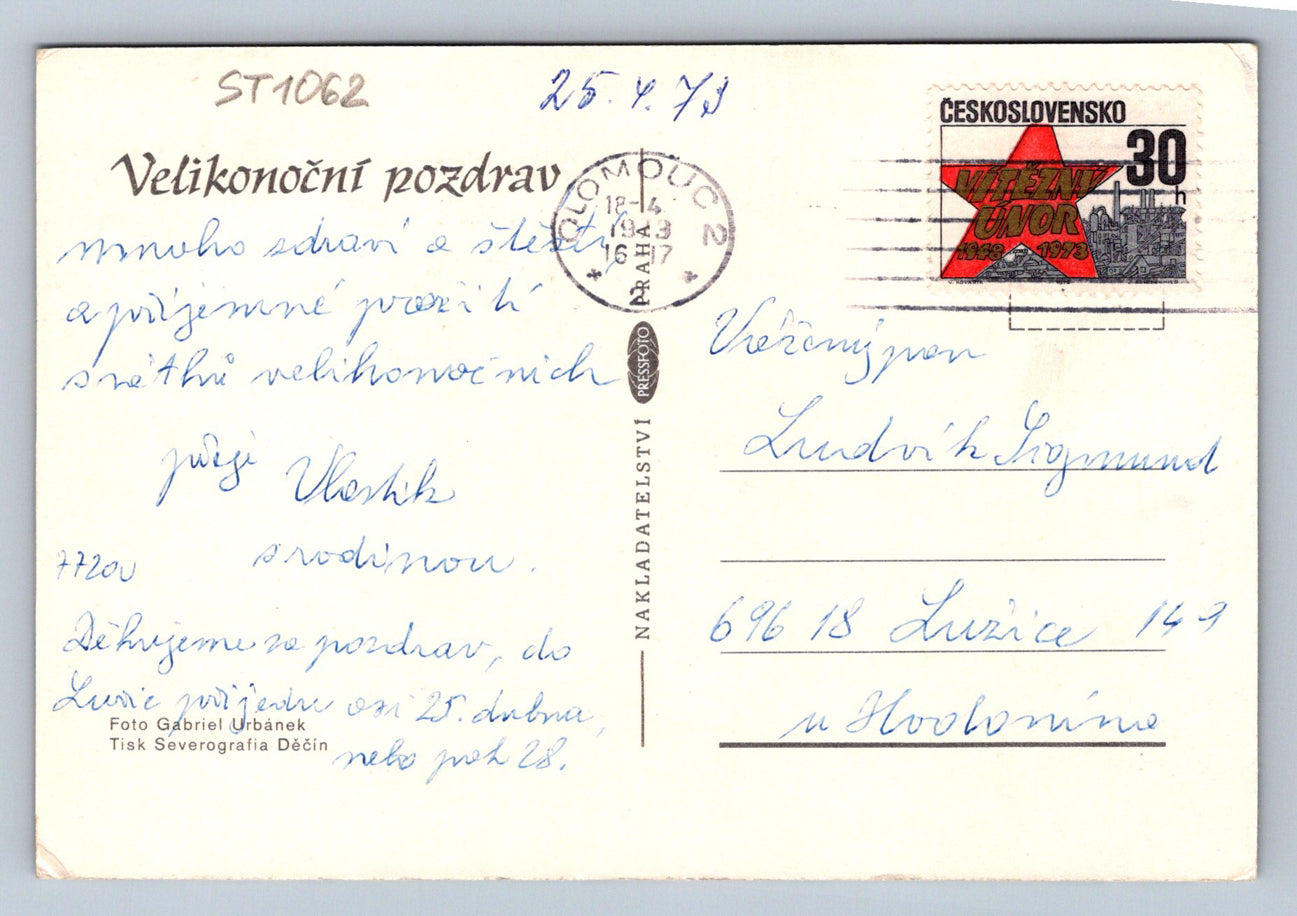 ST1062
25. 4. 73
Velikonoční pozdrav
mnoho zdraví a štěstí
a příjemné prožití
svátků velikonočních
přeje Vlastík
s rodinou.
Děkujeme za pozdrav, do
Lužic přijedu asi 25. dubna,
nebo pak 28.
Foto Gabriel Urbánek
Tisk Severografia Děčín
NAKLADATELSTVÍ PRESSFOTO PRAHA
OLOMOUC 2
18-4
1973
16 17
ČESKOSLOVENSKO
30
h
VÍTĚZNÝ
ÚNOR
1948 1973
Vážený pan
Ludvík Sigmund
696 18 Lužice 149
u Hodonína